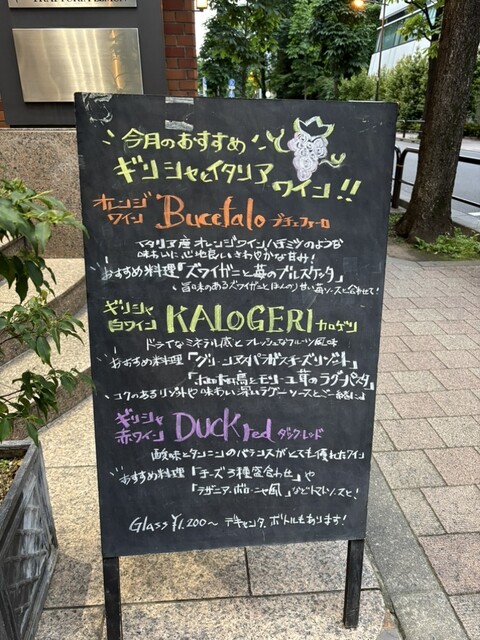 TRATTORIA
今月のおすすめ
ギリシャとイタリア
ワイン!!
オレンジワイン Bucefalo ブチェファーロ
イタリア産オレンジワイン ハチミツのような
味わいに心地良いさわやかな甘み!
おすすめ料理「ズワイガニと苺のブルスケッタ」
旨味のあるズワイガニとほんのり甘い苺ソースと合わせて!
ギリシャ白ワイン KALOGERI カロゲリ
ドライなミネラル感とフレッシュなフルーツ風味
おすすめ料理「グリーンアスパラガスチーズリゾット」
とモリーユ茸のラグーパスタ」
コクのあるリゾットや味わい深いラグーソースとご一緒に♪
ギリシャ赤ワイン Duck red ダックレッド
酸味とタンニンのバランスがとても優れたワイン
おすすめ料理「チーズ3種盛合わせ」や
「ラザニア・ボローニャ風」などトマトソースと!
Glass ¥1,200〜 デキャンタ、ボトルもあります!